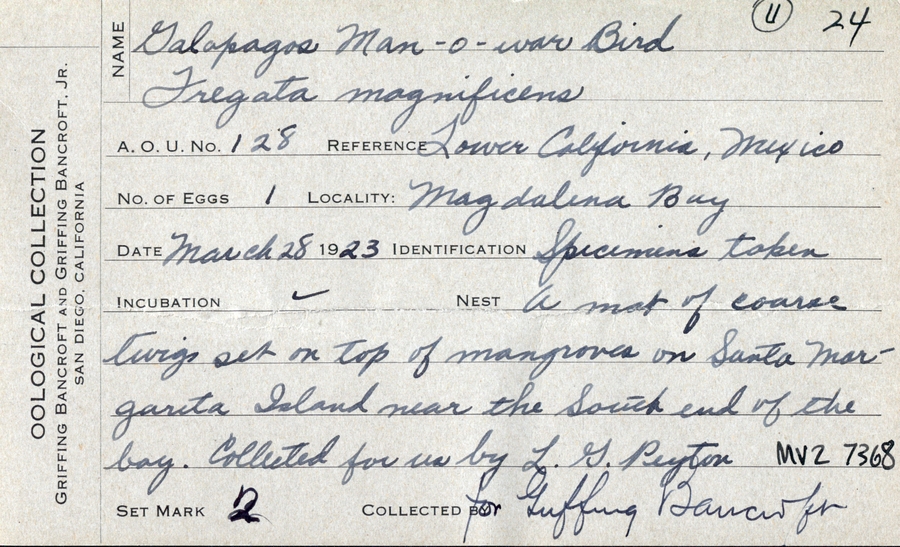 11 24
NAME Galapagos Man-o-war Bird
Fregata magnificens
A. O. U. No. 128 REFERENCE Lower California, Mexico
No. of Eggs 1 LOCALITY: Magdalena Bay
DATE March 28 1923 IDENTIFICATION Specimens taken
INCUBATION ✓ NEST A mat of coarse
twigs set on top of mangroves on Santa Mar-
garita Island near the South end of the
bay. Collected for us by L. G. Peyton MVZ 7368
SET MARK 2 COLLECTED BY for Griffing Bancroft
OOLOGICAL COLLECTION
GRIFFING BANCROFT AND GRIFFING BANCROFT, JR.
SAN DIEGO, CALIFORNIA